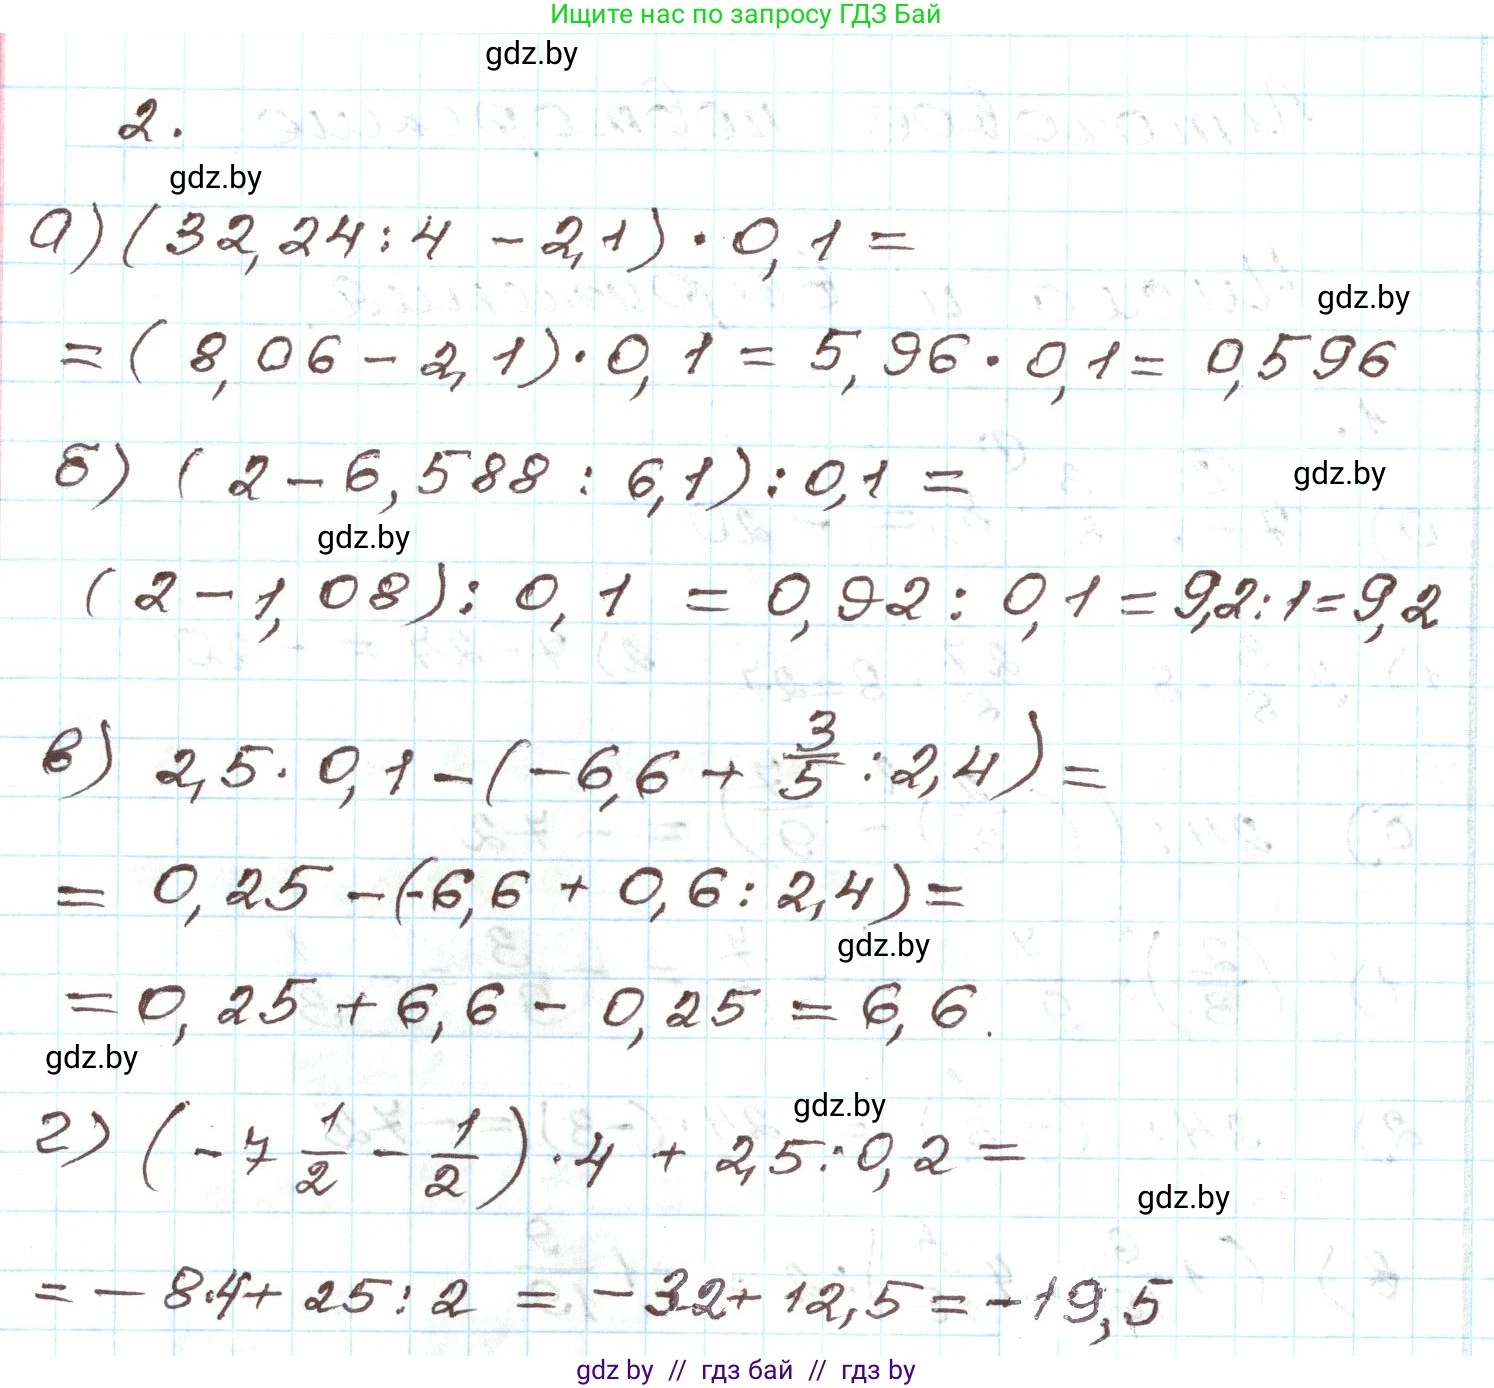 Ищите нас по запросу ГДЗ Бай
gdz.by
2.
gdz.by
а) (32,24:4 - 2,1) · 0,1 =
gdz.by
= (8,06 - 2,1) · 0,1 = 5,96 · 0,1 = 0,596
б) (2 - 6,588 : 6,1) : 0,1 =
gdz.by
gdz.by
(2 - 1,08) : 0,1 = 0,92 : 0,1 = 9,2 : 1 = 9,2
в) 2,5 · 0,1 - (-6,6 + 3/5 : 2,4) =
= 0,25 - (-6,6 + 0,6 : 2,4) =
gdz.by
= 0,25 + 6,6 - 0,25 = 6,6.
gdz.by
gdz.by
г) (-7 1/2 - 1/2) · 4 + 2,5 : 0,2 =
gdz.by
= - 8·4 + 25 : 2 = -32 + 12,5 = -19,5
gdz.by // гдз бай // гдз by